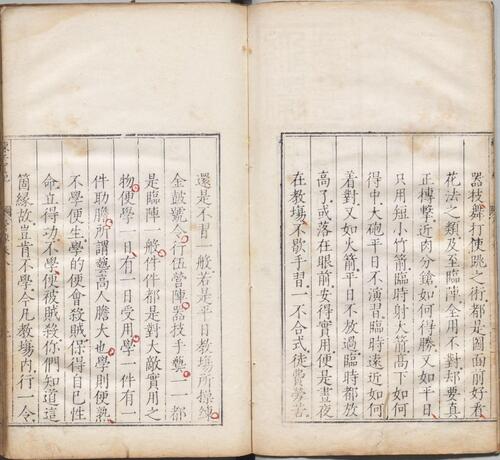 器技舞打使跳之術都是圖面前好看
花法之類及至臨陣全用不對却要真
正搏擊近肉分鎗如何得勝又如平日
只用短小竹箭臨時射大箭高下如何
得中大砲平日不演習臨時遠近如何
着對又如火箭平日不放過臨時都放
高了或落在眼前安得實用便是晝夜
在教場不歇手習一不合式徒費勞苦
還是不習一般若是平日教場所操練
金鼓號令行伍營陣器技手藝一一都
是臨陣一般件件都是對大敵實用之
物便學一日有一日受用學一件有一
件助膽所謂藝高人膽大也學則便熟
不學便生學的便會殺賊保得自己性
命立得功不學便被賊殺你們知道這
箇緣故豈肯不學今凡教場內行一令